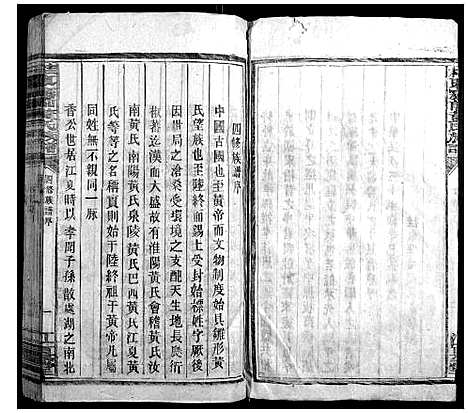 四修族譜序
中國古國也至黃帝而文物制度始具雛形黃
氏望族也至陸終而錫土受封始標姓字厥後
因世局之滄桑受環境之支配天生地長庶衍
椒蕃迄漢而大盛故有淮陽黃氏會稽黃氏汝
南黃氏南陽黃氏泉陵黃氏巴西黃氏江夏黃
氏等等之名稱頁則始于陸終祖于黃帝凡屬
同姓無不親同一脉
香公世居江夏時以孝聞子孫散處湖之南北
四修族譜序
一